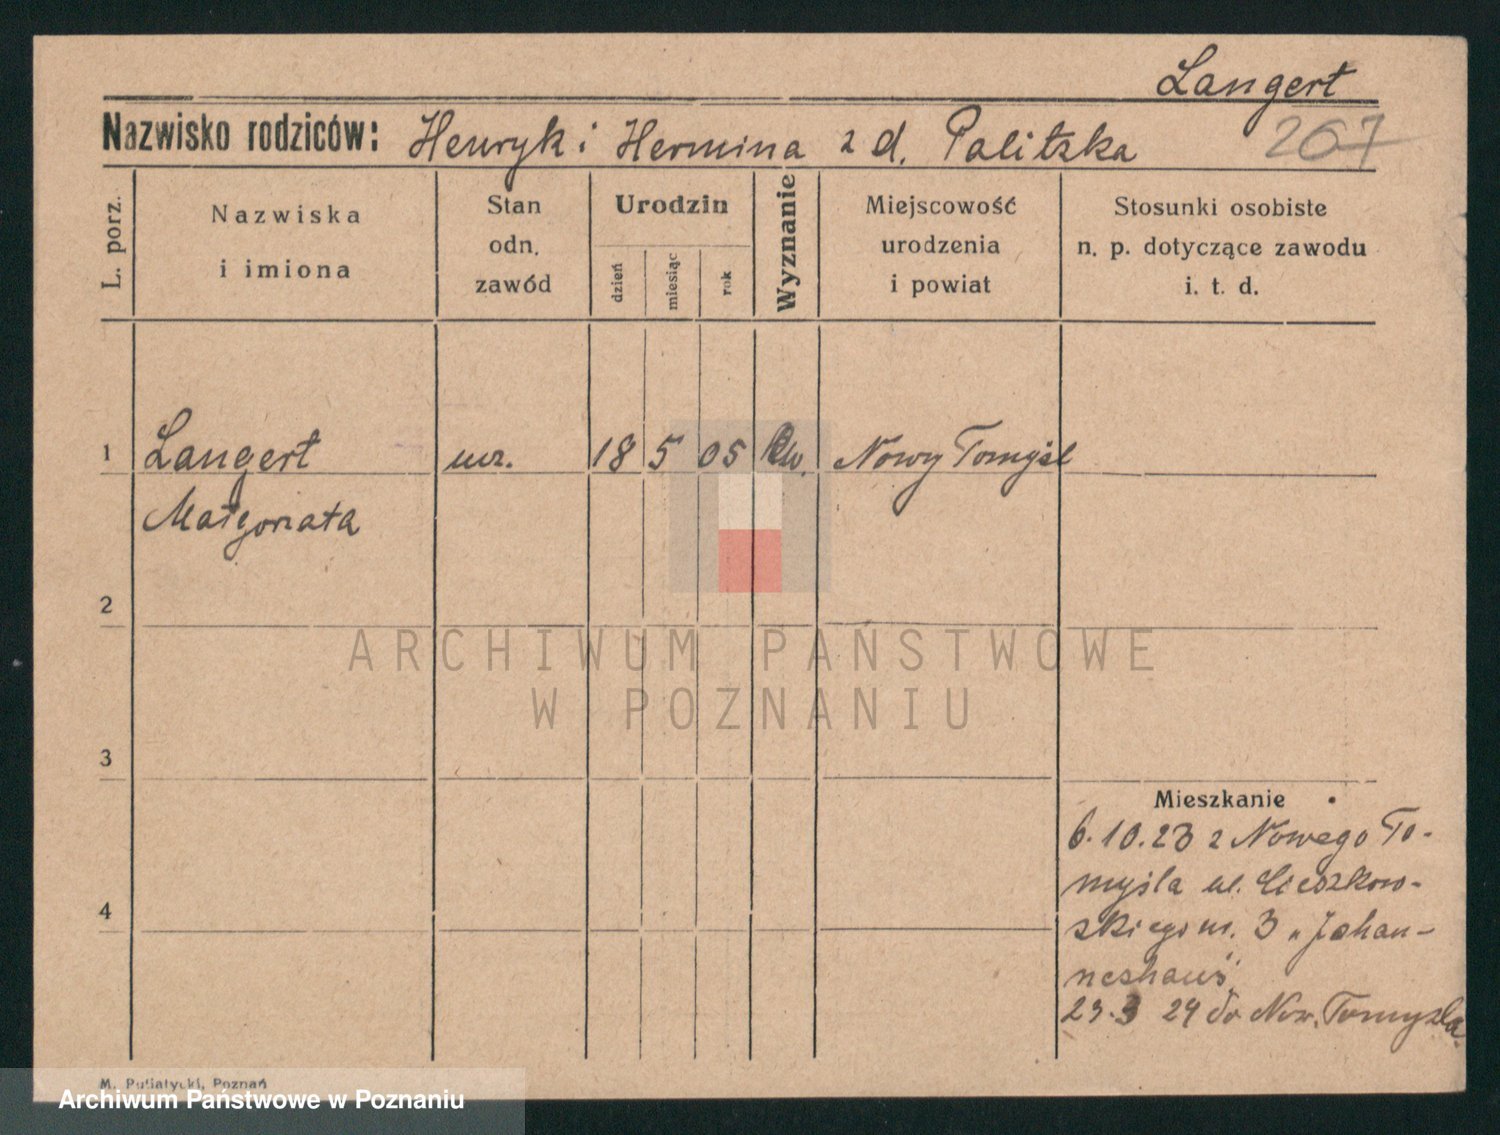 Langert
Nazwisko rodziców: Henryk i Hermina z d. Politzka 267
L. porz.
Nazwiska
i imiona
Stan
odn.
zawód
Urodzin
dzień
miesiąc
rok
Wyznanie
Miejscowość
urodzenia
i powiat
Stosunki osobiste
n. p. dotyczące zawodu
i. t. d.
1 Langert ucz. 18 5 05 Nowy Tomyśl
Małgorzata
2
ARCHIWUM PAŃSTWOWE
W POZNANIU
3
Mieszkanie
6.10.23 z Nowego To-
myśla ul. Cieszkow-
skiego nr. 3 „Johan-
neshaus"
23.3 24 do Now. Tomyśla.
4
M. Putiatycki, Poznań
Archiwum Państwowe w Poznaniu